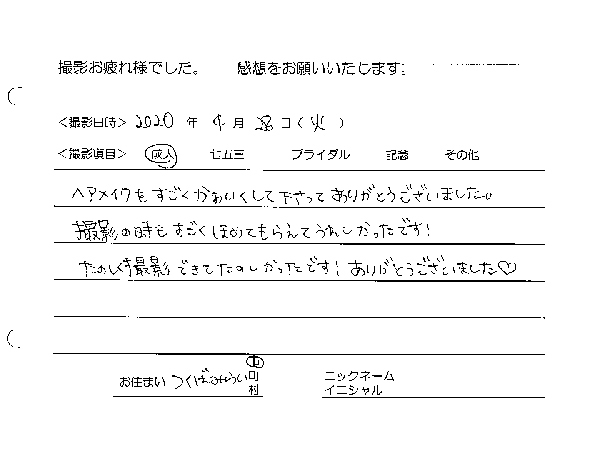 撮影お疲れ様でした。 感想をお願いいたします。
<撮影日時> 2020 年 4 月 28 日 (火)
<撮影項目> 成人 七五三 ブライダル 記念 その他
ヘアメイクもすごくかわいくして下さってありがとうございました。
撮影の時もすごくほめてもらえてうれしかったです!
たのしく撮影できてたのしかったです! ありがとうございました♡
お住まい つくばみらい 市
町
村
ニックネーム
イニシャル